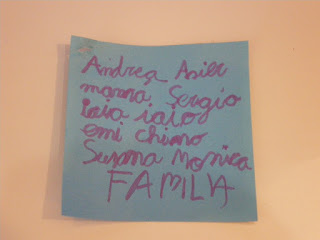 Andrea Asier
mama Sergio
iaia iaio
emi chimo
Susana Monica
FAMILIA